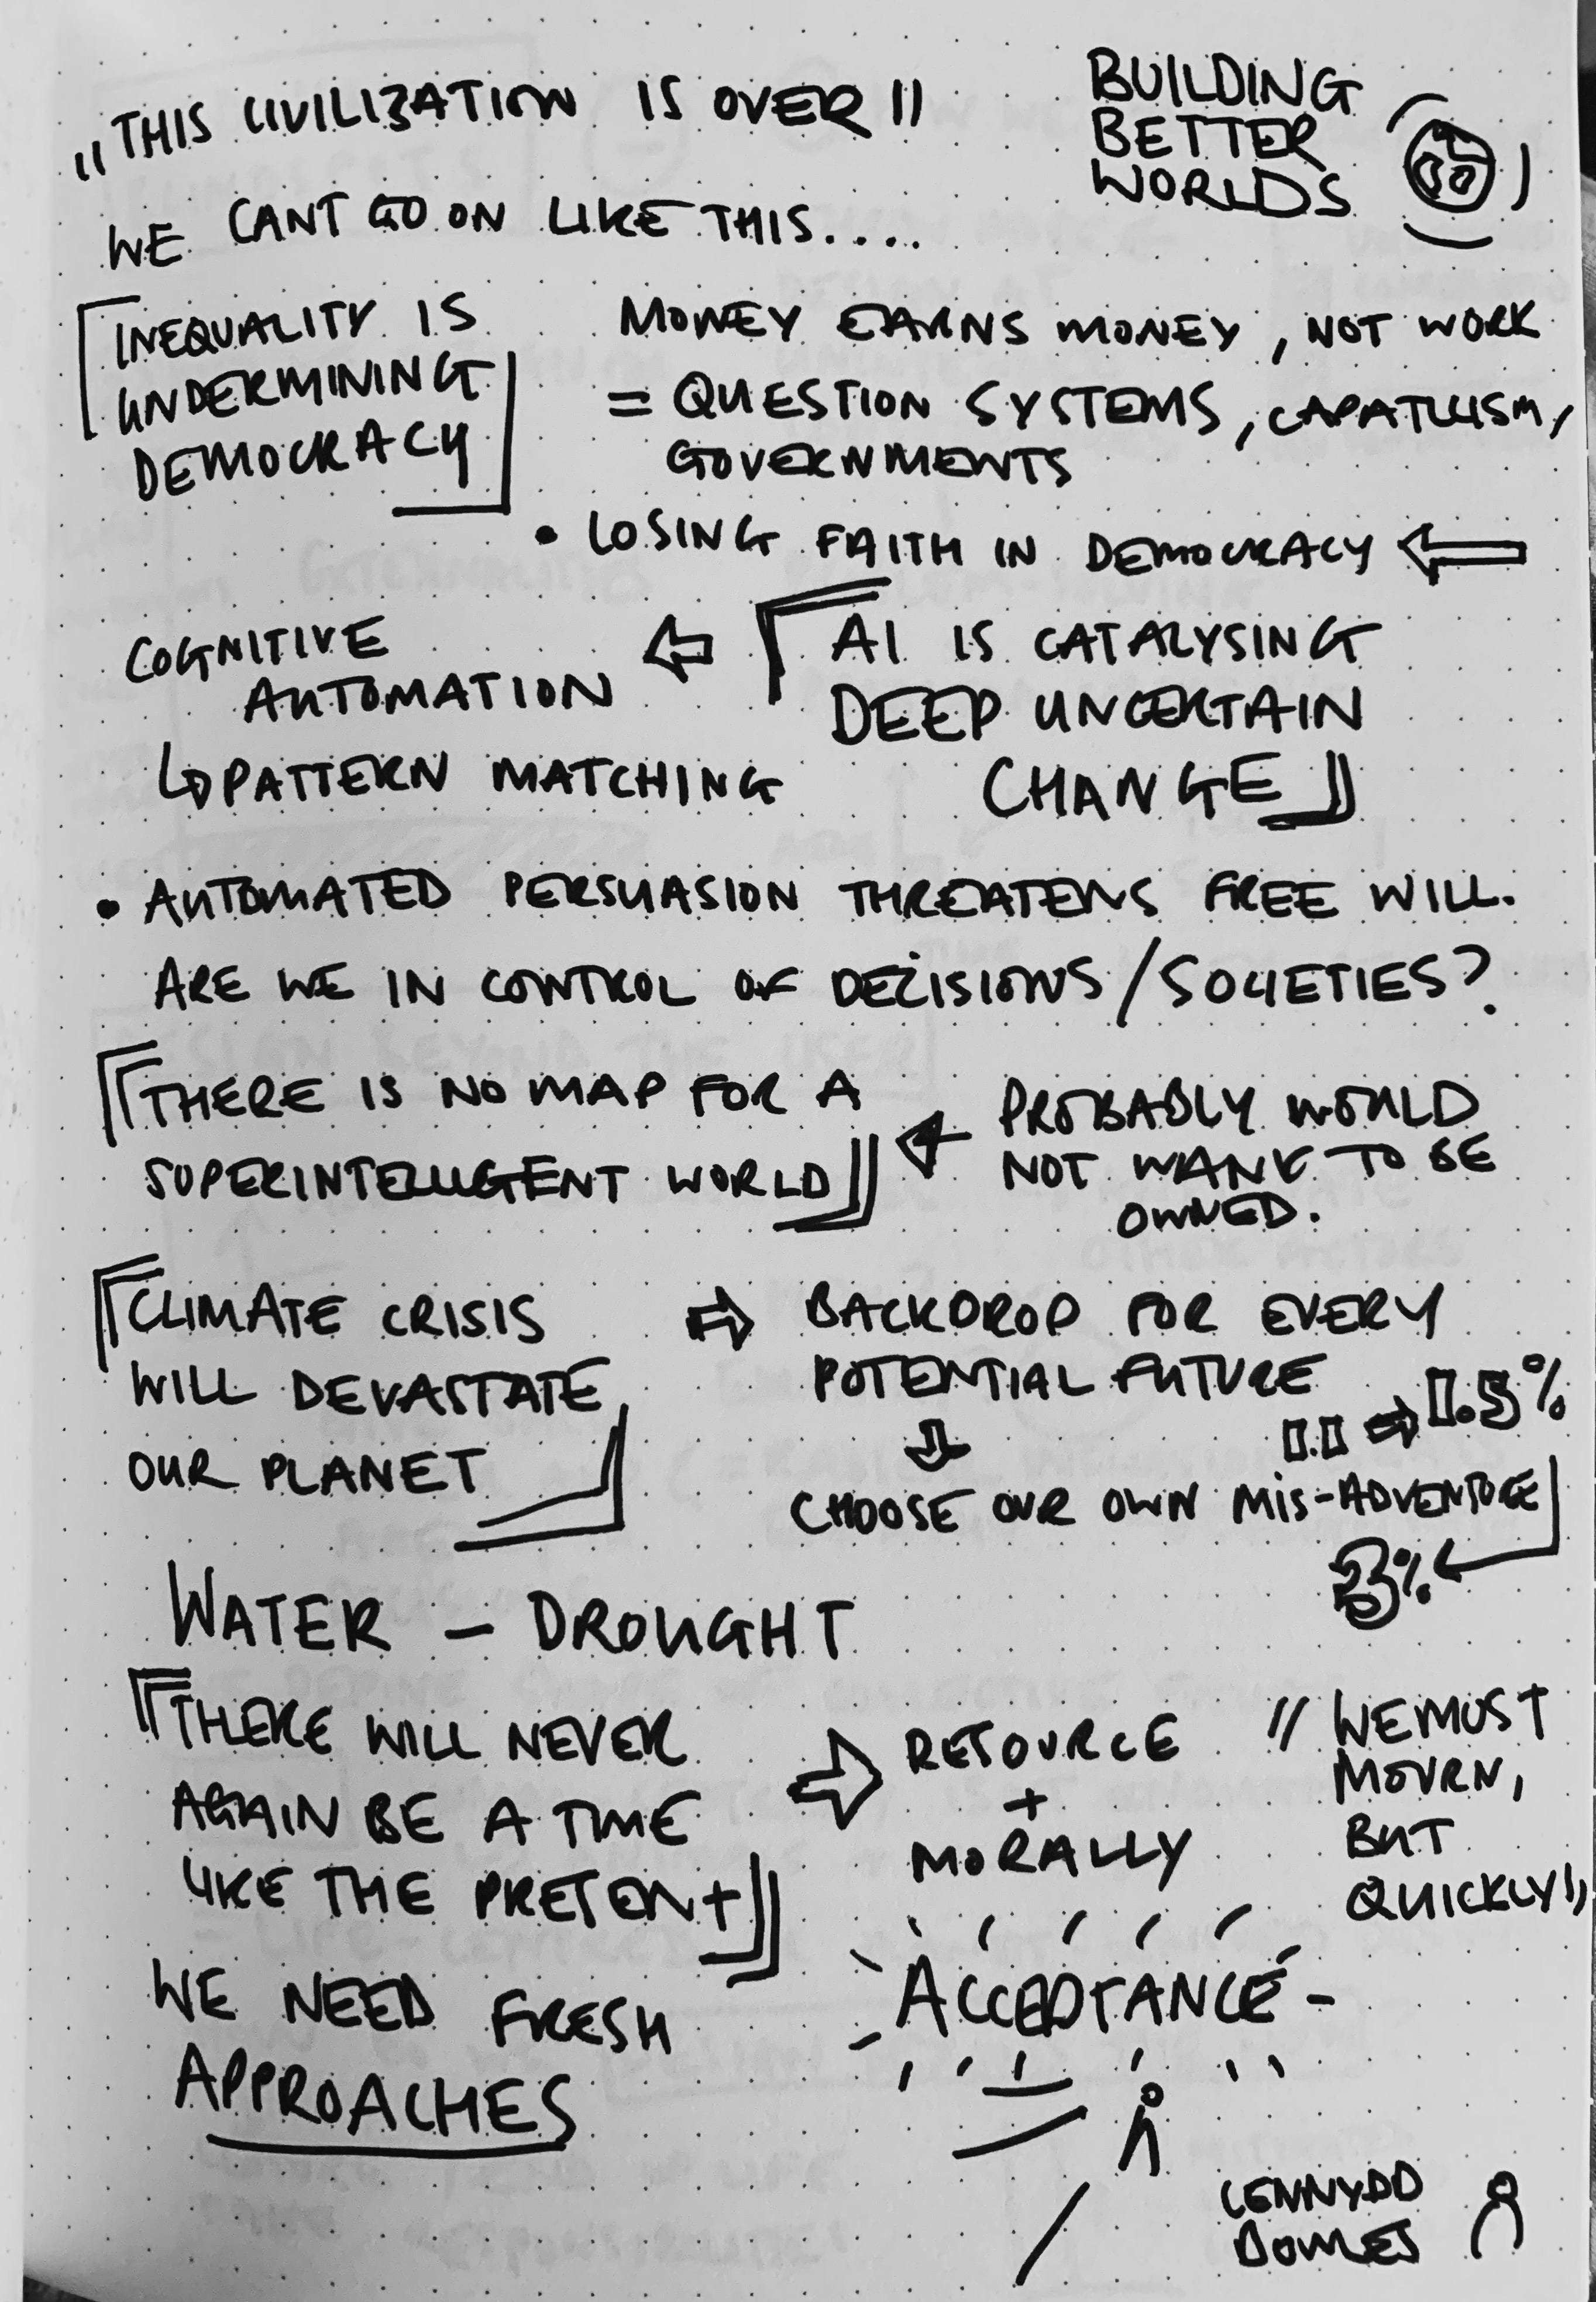 „THIS CIVILIZATION IS OVER"
BUILDING
BETTER
WORLDS
WE CANT GO ON LIKE THIS....
INEQUALITY IS
UNDERMINING
DEMOCRACY
MONEY EARNS MONEY, NOT WORK
= QUESTION SYSTEMS, CAPATLISM,
GOVERNMENTS
• LOSING FAITH IN DEMOCRACY
COGNITIVE
AUTOMATION
PATTERN MATCHING
AI IS CATALYSING
DEEP UNCERTAIN
CHANGE
• AUTOMATED PERSUASION THREATENS FREE WILL.
ARE WE IN CONTROL OF DECISIONS/SOCIETIES?
THERE IS NO MAP FOR A
SUPERINTELLIGENT WORLD
PROBABLY WOULD
NOT WANT TO BE
OWNED.
CLIMATE CRISIS
WILL DEVASTATE
OUR PLANET
BACKDROP FOR EVERY
POTENTIAL FUTURE
1.1 ⇨ 1.5%
CHOOSE OUR OWN MIS-ADVENTURE
3%
WATER – DROUGHT
THERE WILL NEVER
AGAIN BE A TIME
LIKE THE PRESENT
RESOURCE
+
MORALLY
// WE MUST
MOURN,
BUT
QUICKLY"
WE NEED FRESH
APPROACHES
ACCEPTANCE –
CENNYDD
BOWLES